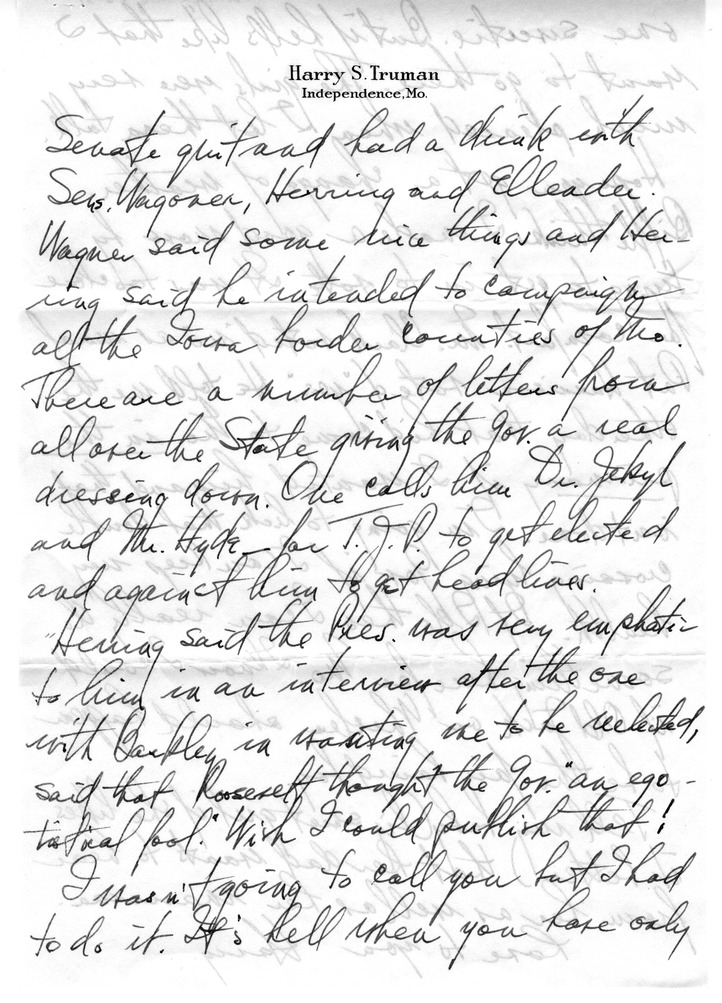 Harry S. Truman
Independence, Mo.
Senate quit and had a drink with
Sens. Wagoner, Herring and Elleader.
Wagner said some nice things and Her-
ring said he intended to campaign
all the Iowa border counties of Mo.
There are a number of letters from
all over the State giving the Gov. a real
dressing down. One calls him Dr. Jekyl
and Mr. Hyde - for T.J.P. to get elected
and against him to get headlines.
"Herring said the Pres. was very emphatic
to him in an interview after the one
with Barkley in wanting me to be reelected,
said that Roosevelt thought the Gov. "an ego-
tistical fool." Wish I could publish that!
I wasn't going to call you but I had
to do it. It's hell when you have only